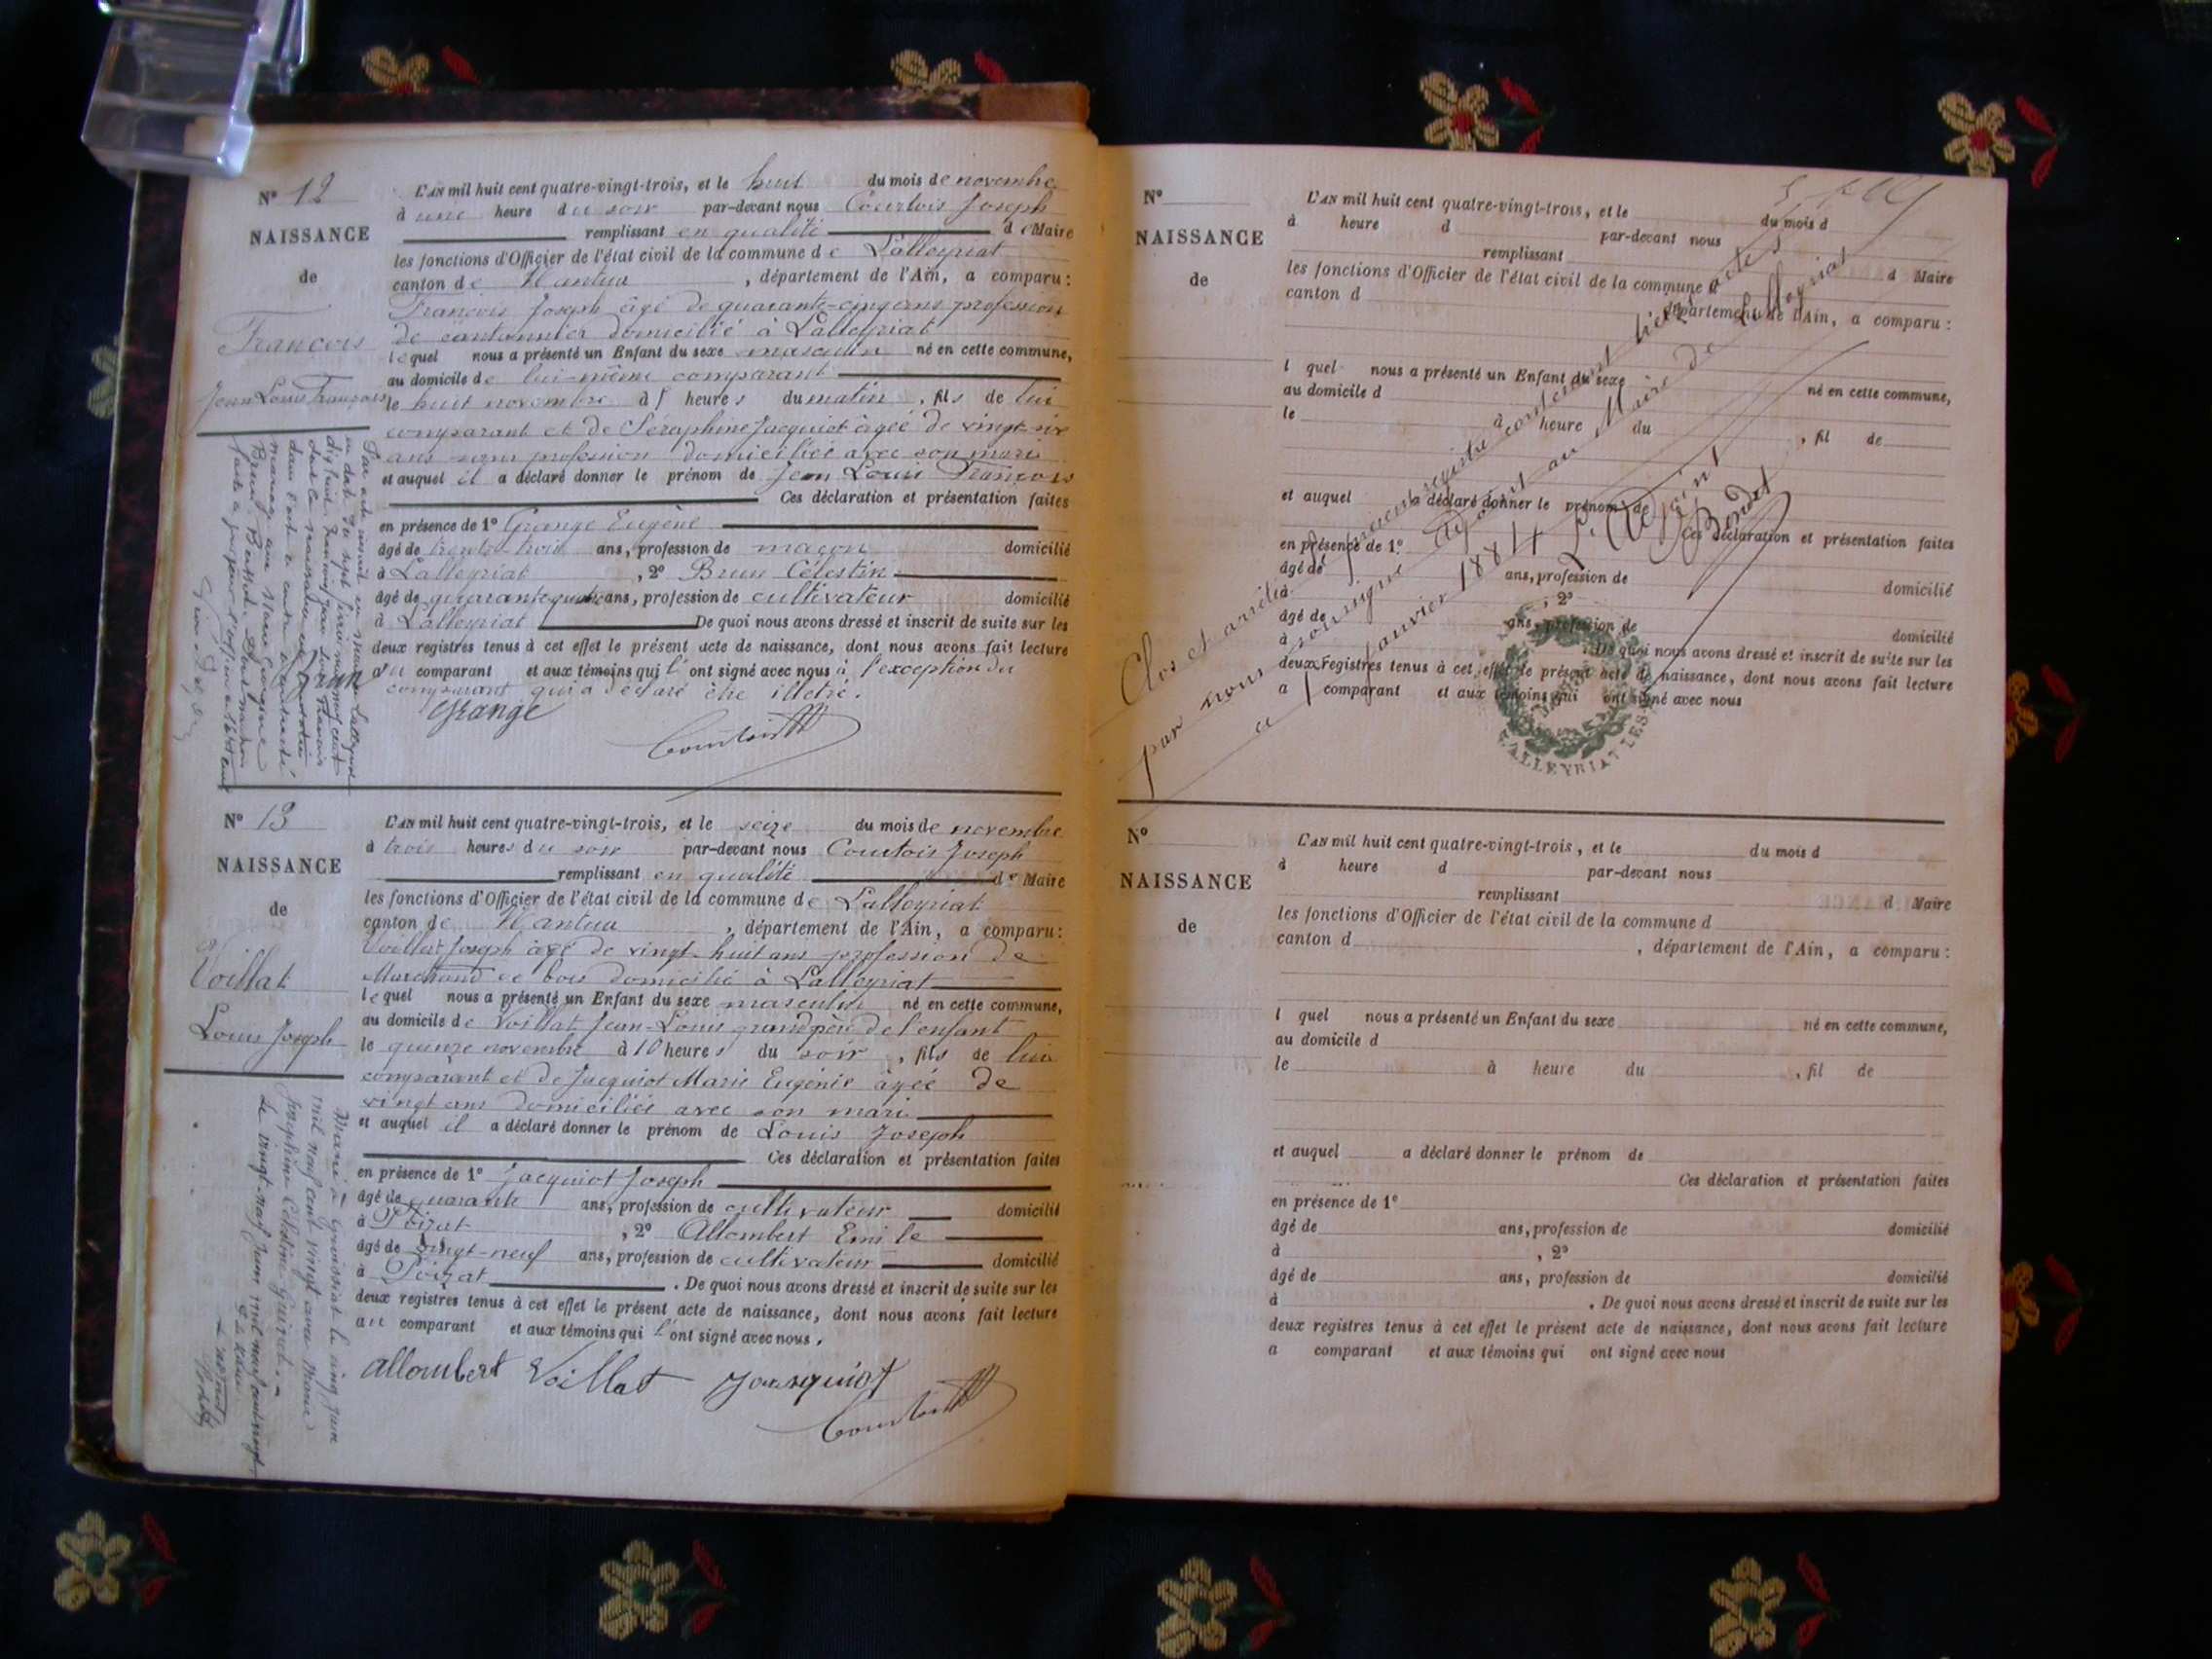 Nº 12
NAISSANCE
de
François
Jean Louis François
L'AN mil huit cent quatre-vingt-trois, et le huit du mois de novembre
à une heure du soir par-devant nous Courtois Joseph
remplissant en qualité de Maire
les fonctions d'Officier de l'état civil de la commune de Lalleyriat
canton de Nantua, département de l'Ain, a comparu:
François Joseph âgé de quarante-cinq ans profession
de cantonnier domicilié à Lalleyriat
lequel nous a présenté un Enfant du sexe masculin né en cette commune,
au domicile de lui-même comparant
le huit novembre à 5 heures du matin, fils de lui
comparant et de Séraphine Jacquiot âgée de vingt-six
ans sans profession domiciliée avec son mari
et auquel il a déclaré donner le prénom de Jean Louis François
Ces déclaration et présentation faites
en présence de 1º Grange Eugène
âgé de trente-trois ans, profession de maçon domicilié
à Lalleyriat, 2º Brun Célestin
âgé de quarante quatre ans, profession de cultivateur domicilié
à Lalleyriat De quoi nous avons dressé et inscrit de suite sur les
deux registres tenus à cet effet le présent acte de naissance, dont nous avons fait lecture
au comparant et aux témoins qui l'ont signé avec nous à l'exception du
comparant qui a déclaré être illétré.
Grange
Courtois
Nº 13
NAISSANCE
de
Voillat
Louis Joseph
Marié à Groissiat le cinq juin
mil neuf cent vingt avec Marie
Joséphine Célestine
Le vingt-neuf juin mil neuf cent vingt
L'AN mil huit cent quatre-vingt-trois, et le seize du mois de novembre
à trois heures du soir par-devant nous Courtois Joseph
remplissant en qualité de Maire
les fonctions d'Officier de l'état civil de la commune de Lalleyriat
canton de Nantua, département de l'Ain, a comparu:
Voillat Joseph âgé de vingt-huit ans profession de
Marchand de bois domicilié à Lalleyriat
lequel nous a présenté un Enfant du sexe masculin né en cette commune,
au domicile de Voillat Jean-Louis grand père de l'enfant
le quinze novembre à 10 heures du soir, fils de lui
comparant et de Jacquiot Marie Eugénie âgée de
vingt ans domiciliée avec son mari
et auquel il a déclaré donner le prénom de Louis Joseph
Ces déclaration et présentation faites
en présence de 1º Jacquiot Joseph
âgé de quarante ans, profession de cultivateur domicilié
à Poizat, 2º Allombert Emile
âgé de vingt-neuf ans, profession de cultivateur domicilié
à Poizat. De quoi nous avons dressé et inscrit de suite sur les
deux registres tenus à cet effet le présent acte de naissance, dont nous avons fait lecture
au comparant et aux témoins qui l'ont signé avec nous.
allombert Voillat Jacquiot
Courtois
Nº
NAISSANCE
de
L'AN mil huit cent quatre-vingt-trois, et le du mois d
à heure d par-devant nous
remplissant d Maire
les fonctions d'Officier de l'état civil de la commune d
canton d département de l'Ain, a comparu:
l quel nous a présenté un Enfant du sexe né en cette commune,
au domicile d
le à heure du, fil de
et auquel a déclaré donner le prénom de
Ces déclaration et présentation faites
en présence de 1º
âgé de ans, profession de domicilié
à, 2º
âgé de ans, profession de domicilié
à. De quoi nous avons dressé et inscrit de suite sur les
deux registres tenus à cet effet le présent acte de naissance, dont nous avons fait lecture
a comparant et aux témoins qui ont signé avec nous
Clos et arrêté le présent registre contenant treize actes
par nous soussigné Adjoint au Maire de Lalleyriat
a janvier 1884
L'Adjoint
LALLEYRIAT
Nº
NAISSANCE
de
L'AN mil huit cent quatre-vingt-trois, et le du mois d
à heure d par-devant nous
remplissant d Maire
les fonctions d'Officier de l'état civil de la commune d
canton d, département de l'Ain, a comparu:
l quel nous a présenté un Enfant du sexe né en cette commune,
au domicile d
le à heure du, fil de
et auquel a déclaré donner le prénom de
Ces déclaration et présentation faites
en présence de 1º
âgé de ans, profession de domicilié
à, 2º
âgé de ans, profession de domicilié
à. De quoi nous avons dressé et inscrit de suite sur les
deux registres tenus à cet effet le présent acte de naissance, dont nous avons fait lecture
a comparant et aux témoins qui ont signé avec nous